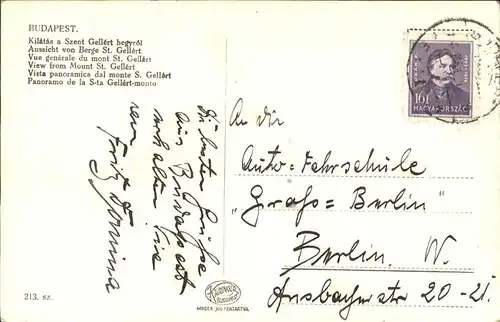 BUDAPEST.
Kilátás a Szent Gellért hegyről
Aussicht von Berge St. Gellért
Vue générale du mont St. Gellért
View from Mount St. Gellért
Vista panoramica dal monte S. Gellért
Panoramo de la S-ta Gellért-monto
Die besten Grüße
aus Budapest
erhalten Sie
von
Fritz
16f
MAGYARORSZÁG
An die
Auto=Fahrschule
"Grafs=Berlin"
Berlin. W.
Ansbacherstr 20-21.
213. sz.
BUDAPEST
MINDEN JOG FENTARTVA